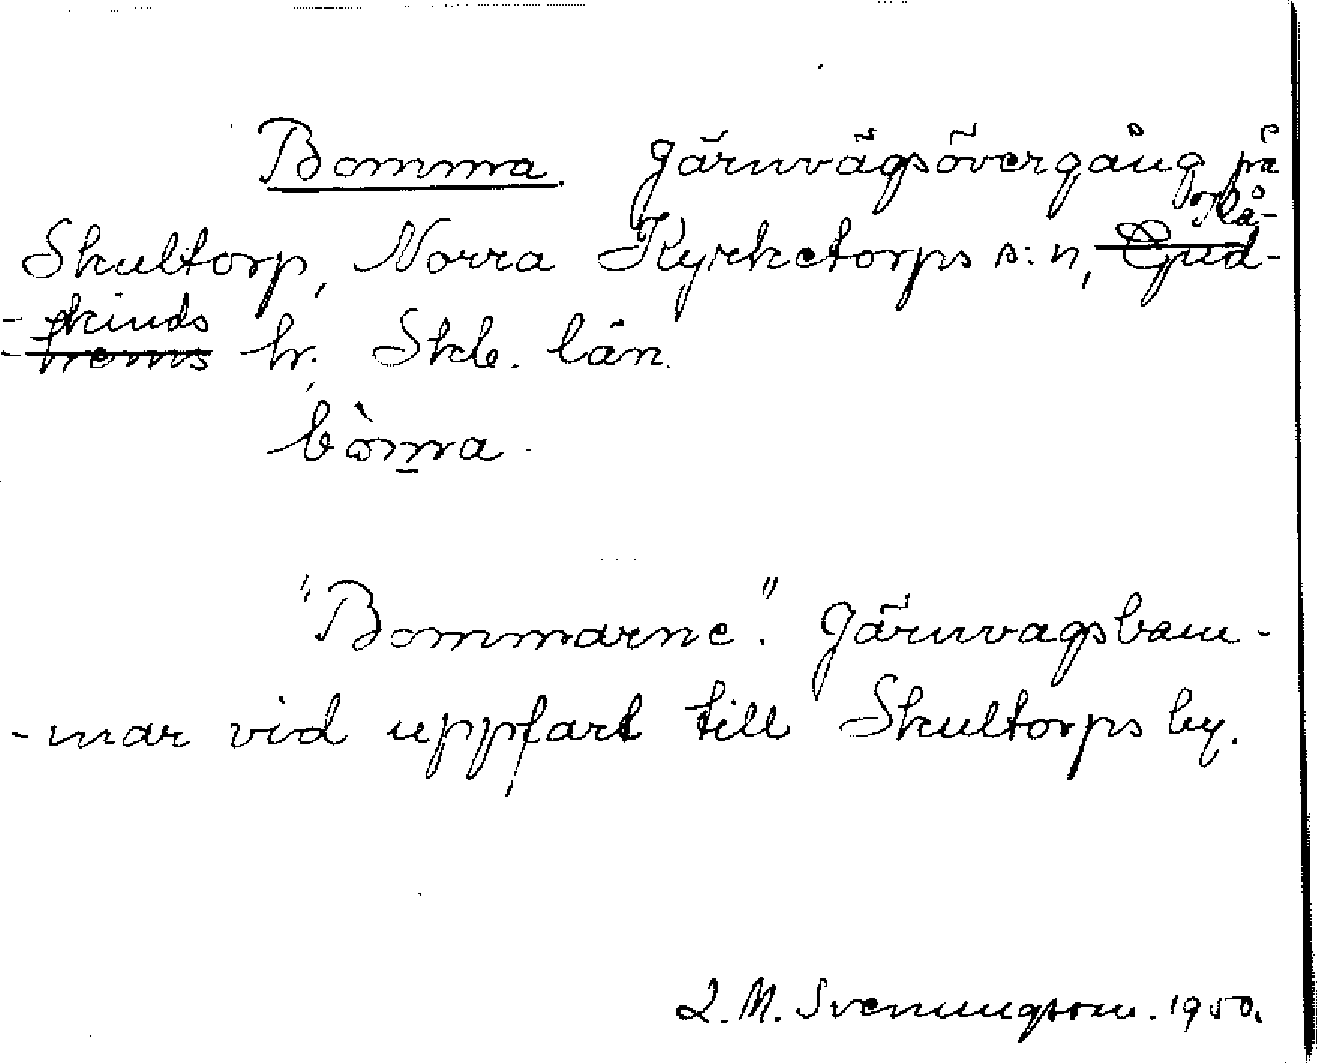 Bomma Järnvägsövergång på
Skultorp, Norra Kyrketorps s:n, Gud- Kå-
-hems -kinds hr. Skb. län.
bòm̲a.
"Bommarne". Järnvagsbom-
-mar vid uppfart till Skultorps by.
L. M. Svenungsson. 1950.